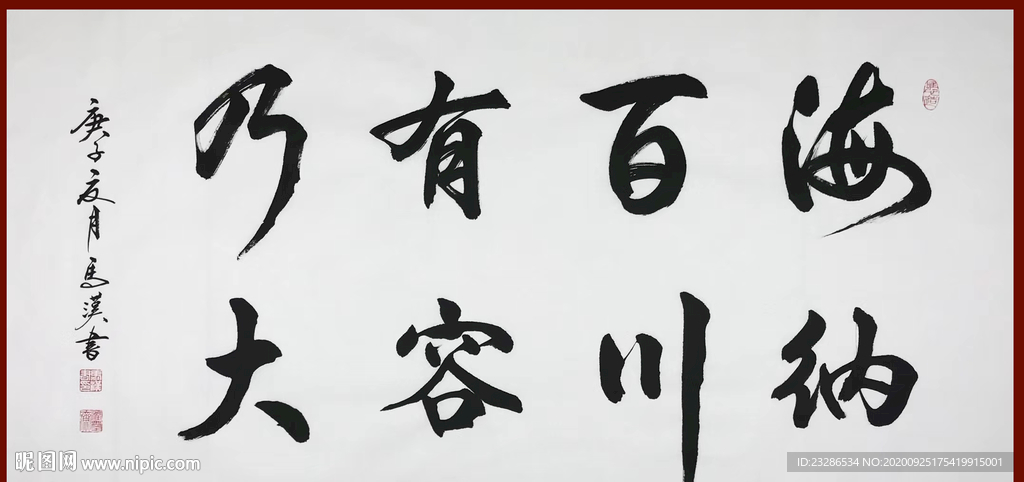 海纳
百川
有容
乃大
庚子夏月馬漢書
昵图网 www.nipic.com
ID:23286534 NO:20200925175419915001